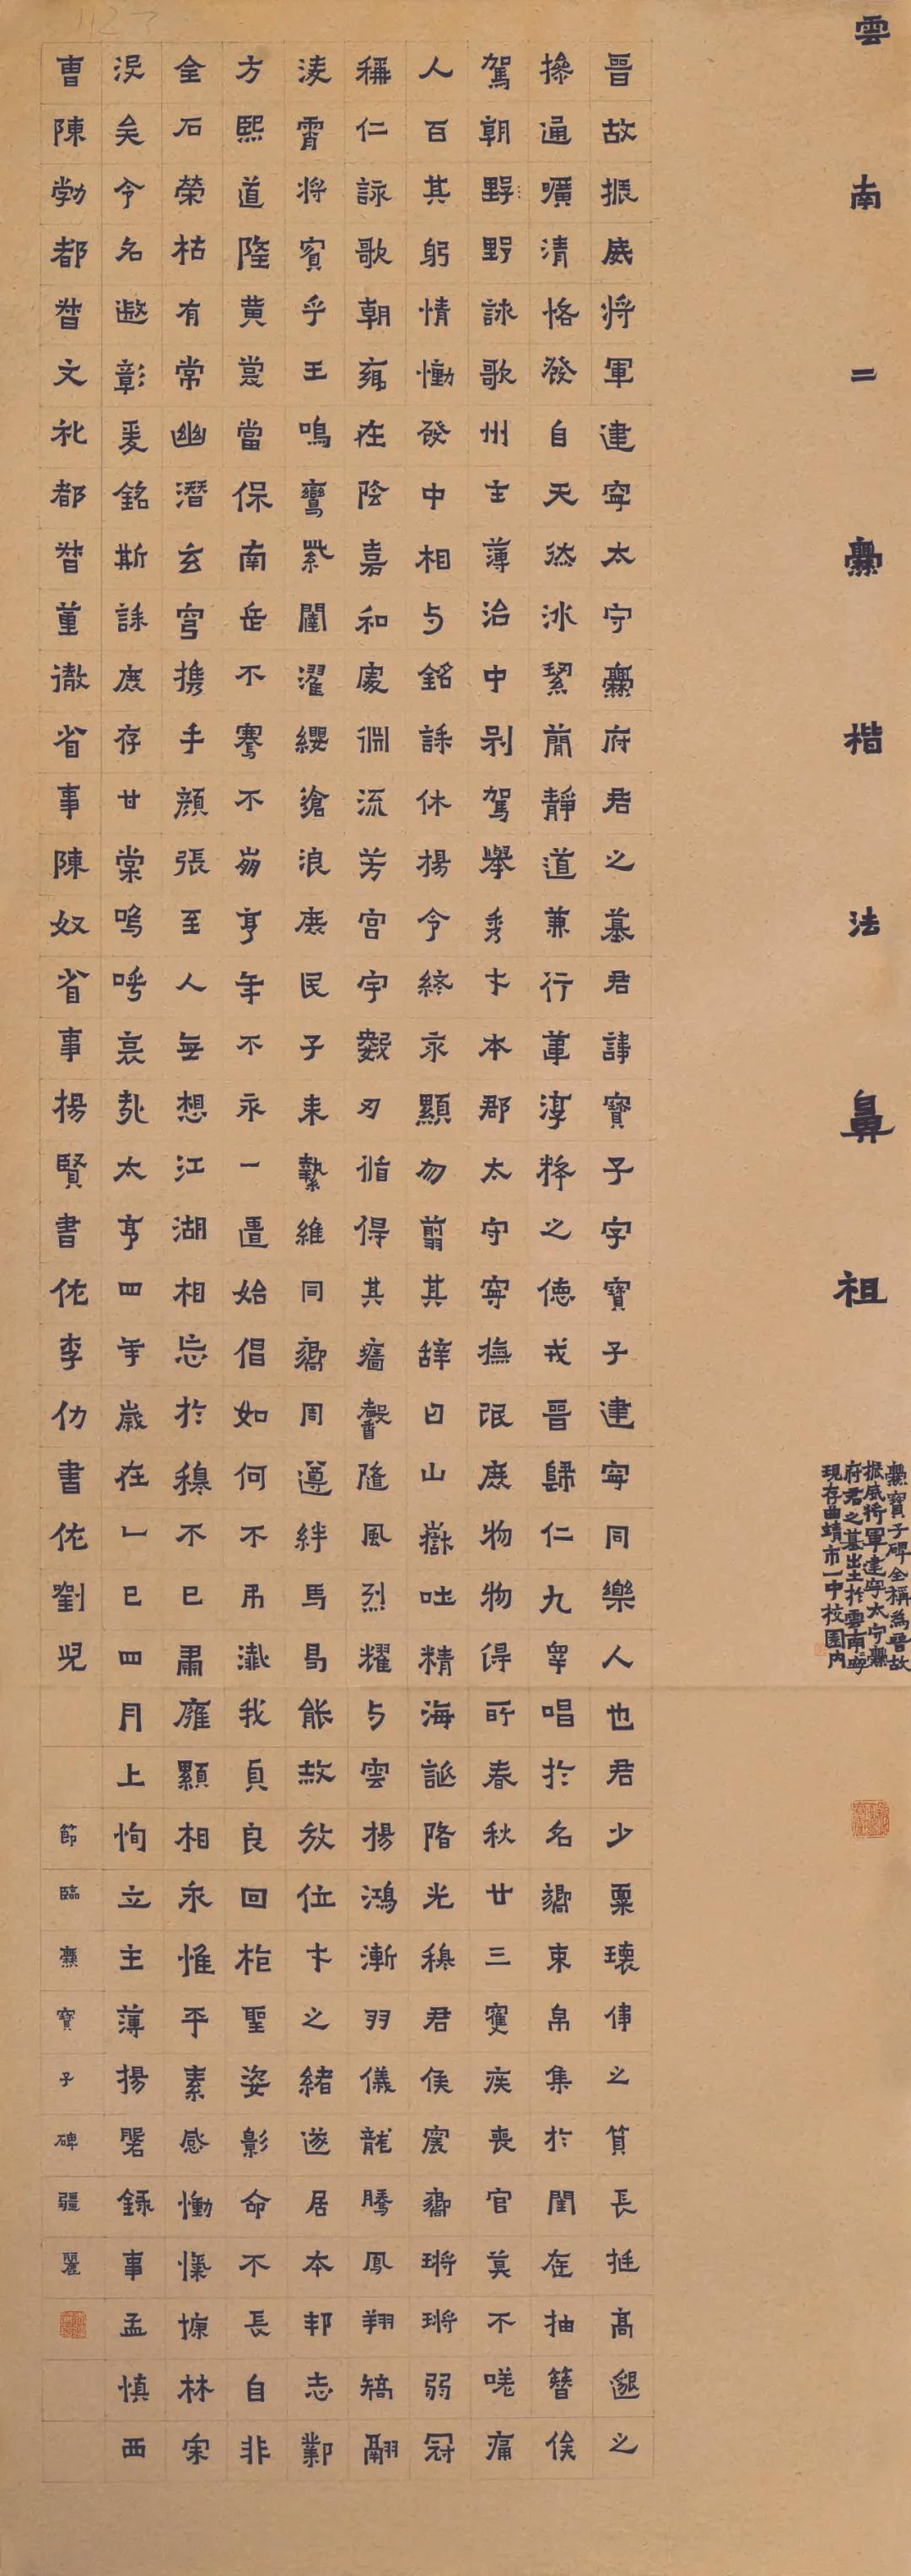 雲南二爨楷法鼻祖
爨寶子碑全稱為晋故
振威将軍建寧太守爨
府君之墓出土於雲南寧
現存曲靖市一中校園内
晉故振威將軍建寧太守爨府君之墓君諱寶子字寶子建寧同樂人也君少稟瓌偉之質長挺高邈之
操通曠清恪發自天然冰絜簡靜道兼行葦淳粹之德戎晉歸仁九皋唱於名嚮束帛集於閨庭抽簪俟
駕朝野野詠歌州主薄治中別駕舉秀才本郡太守寧撫氓庶物物得所春秋廿三寢疾喪官莫不嗟痛
人百其躬情慟發中相与銘誄休揚令終永顯勿翦其辞曰山嶽吐精海誕陼光穆君侯震嚮鏘鏘弱冠
稱仁詠歌朝雍在陰嘉和處淵流芳宮宇數刃循得其墻馨隨風烈耀与雲揚鴻漸羽儀龍騰鳳翔矯翮
淩霄將賓乎王鳴鸞紫闥濯纓滄浪庶民子來縶維同嚮周遵絆馬曷能赦放位才之緒遂居本邦志鄴
方熙道隆黃裳當保南岳不騫不崩享年不永一匱始倡如何不弔殲我貞良回枹聖姿影命不長自非
金石榮枯有常幽潛玄穹攜手顏張至人無想江湖相忘於穆不已肅雍顯相永惟平素感慟愾慷林宗
沒矣令名遐彰爰銘斯誄庶存甘棠嗚呼哀哉太亨四年歲在乙巳四月上恂立主薄楊磐錄事孟慎西
曹陳勃都督文礼都督董徹省事陳奴省事楊賢書佐李仂書佐劉児
節臨爨寶子碑疆麗